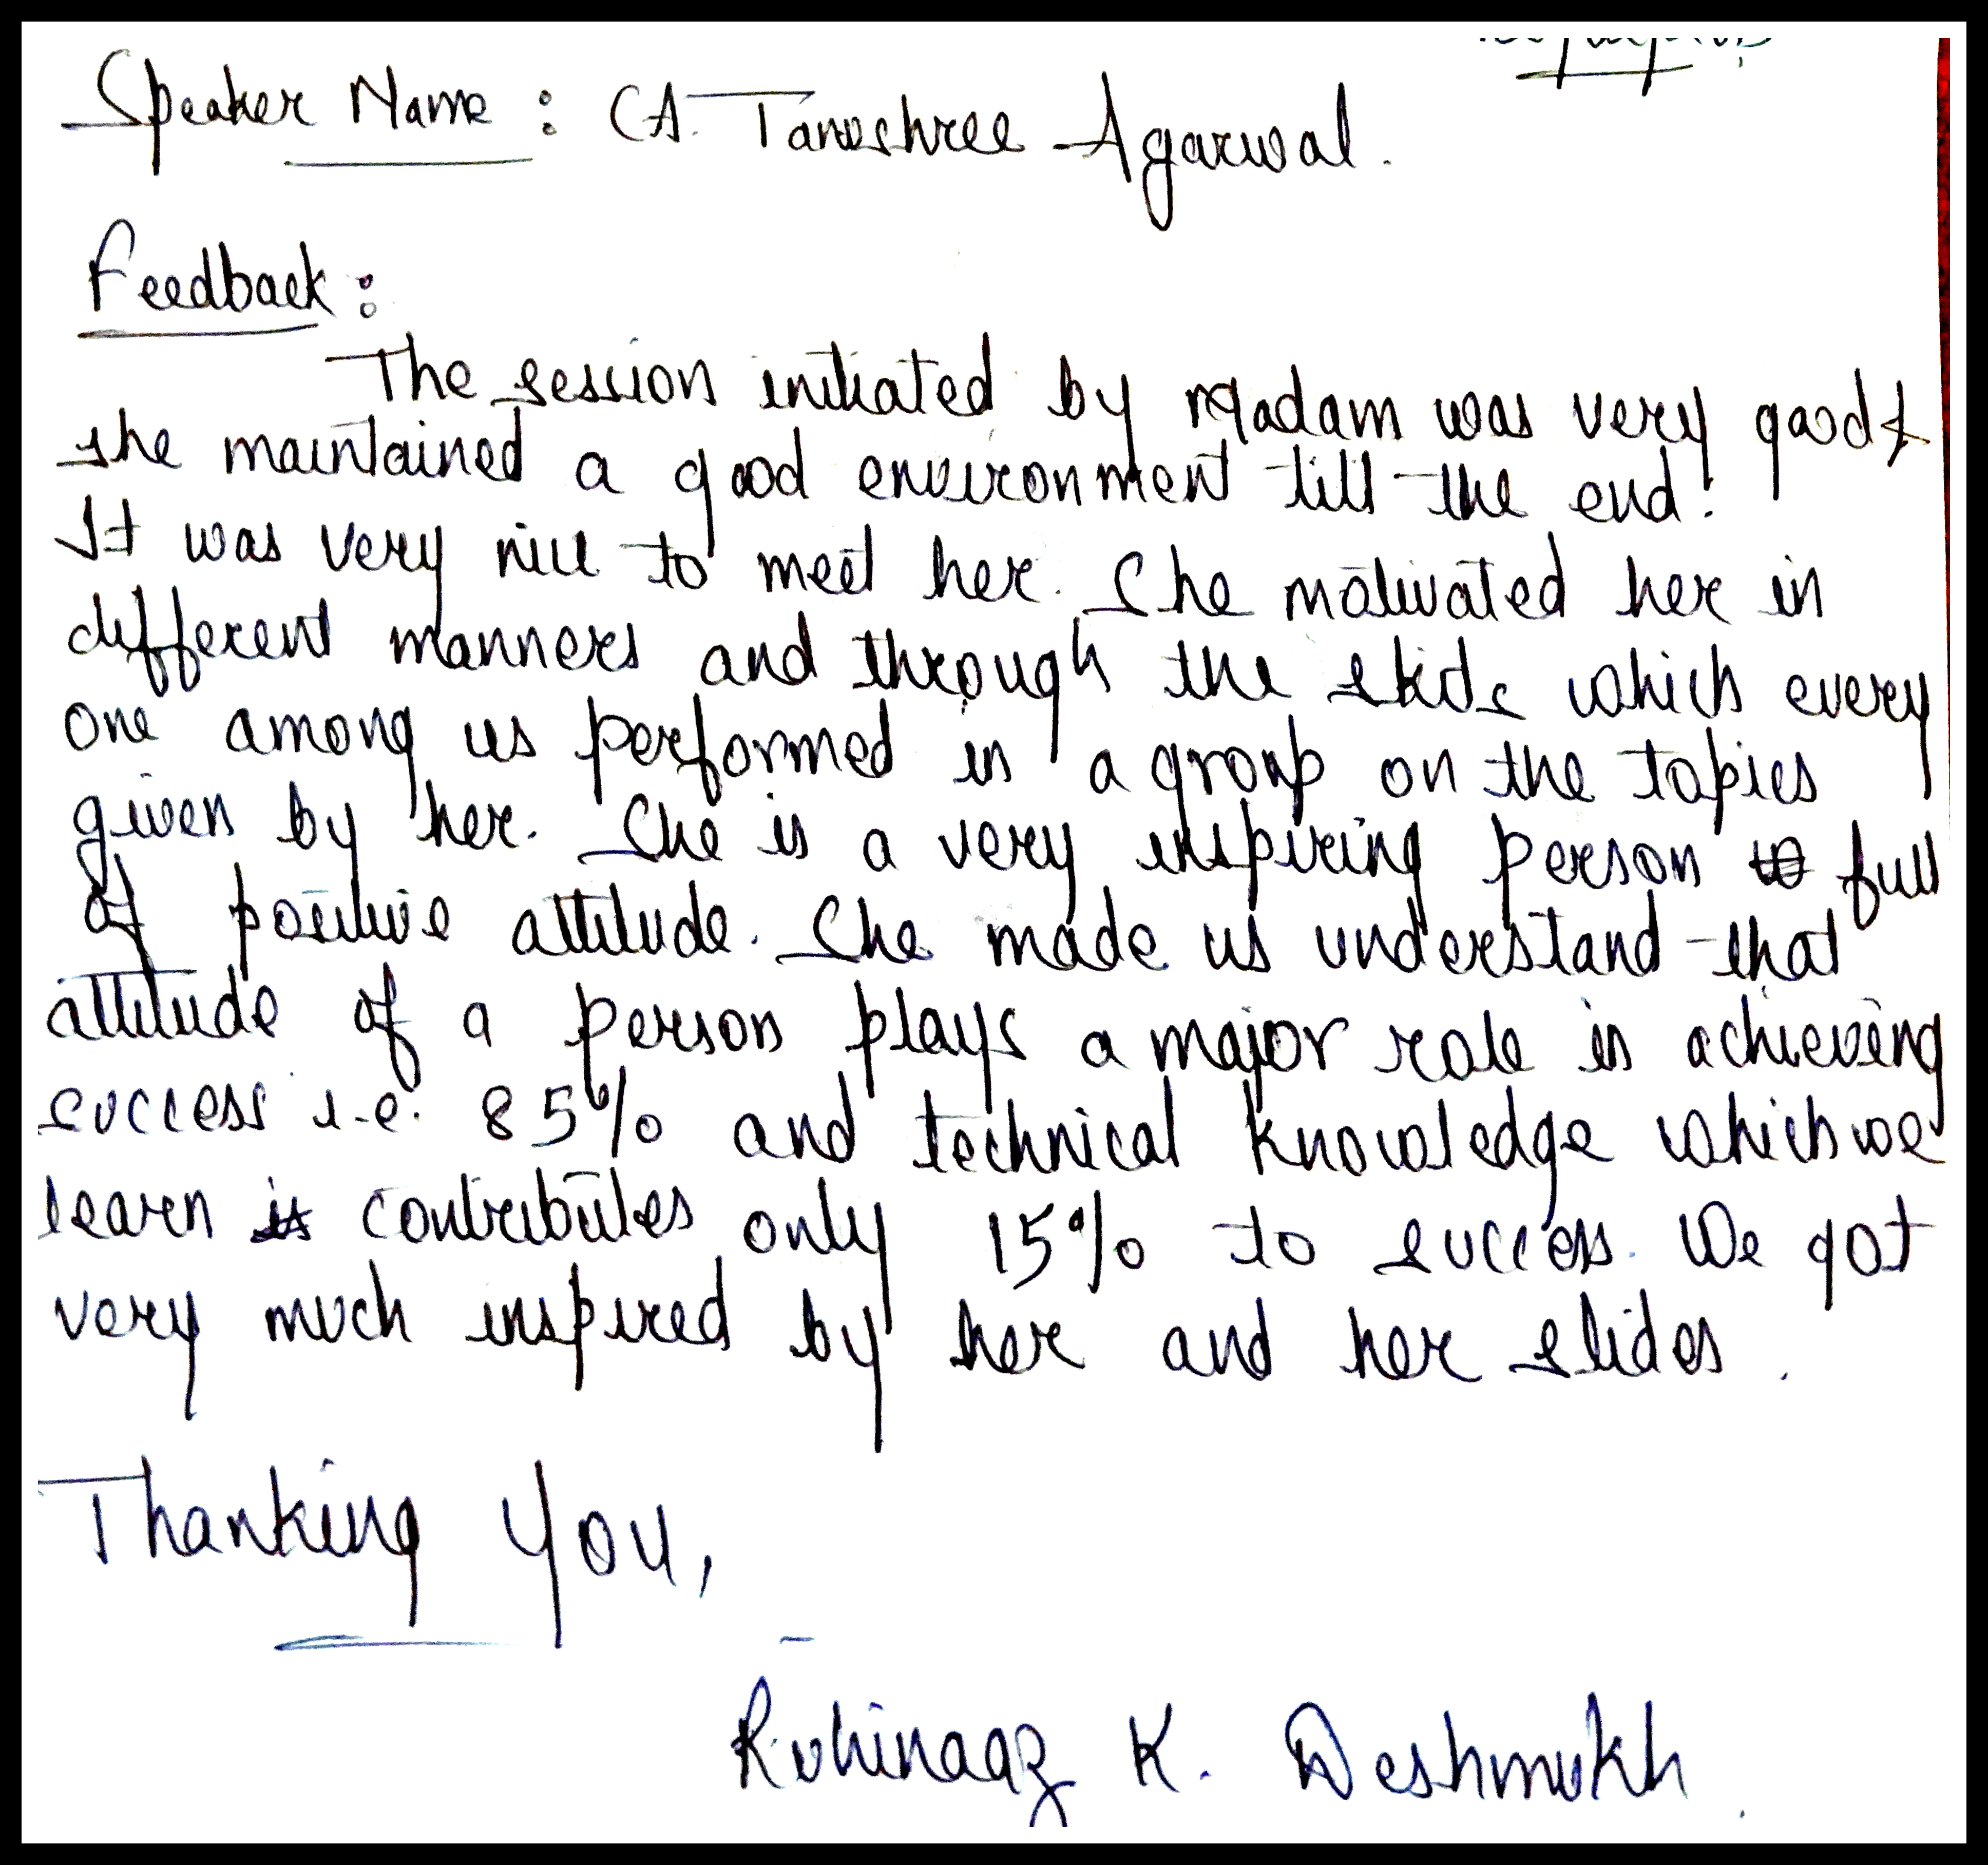 Speaker Name : CA. Tanushree Agarwal.
Feedback :
The session initiated by Madam was very good &
she maintained a good environment till the end.
It was very nice to meet her. She motivated her in
different manners and through the skids which every
one among us performed in a group on the topics
given by her. She is a very inspiring person full
of positive attitude. She made us understand that
attitude of a person plays a major role in achieving
success i.e. 85% and technical knowledge which we
learn contributes only 15% to success. We got
very much inspired by her and her slides.
Thanking you,
Ruhinaaz K. Deshmukh.